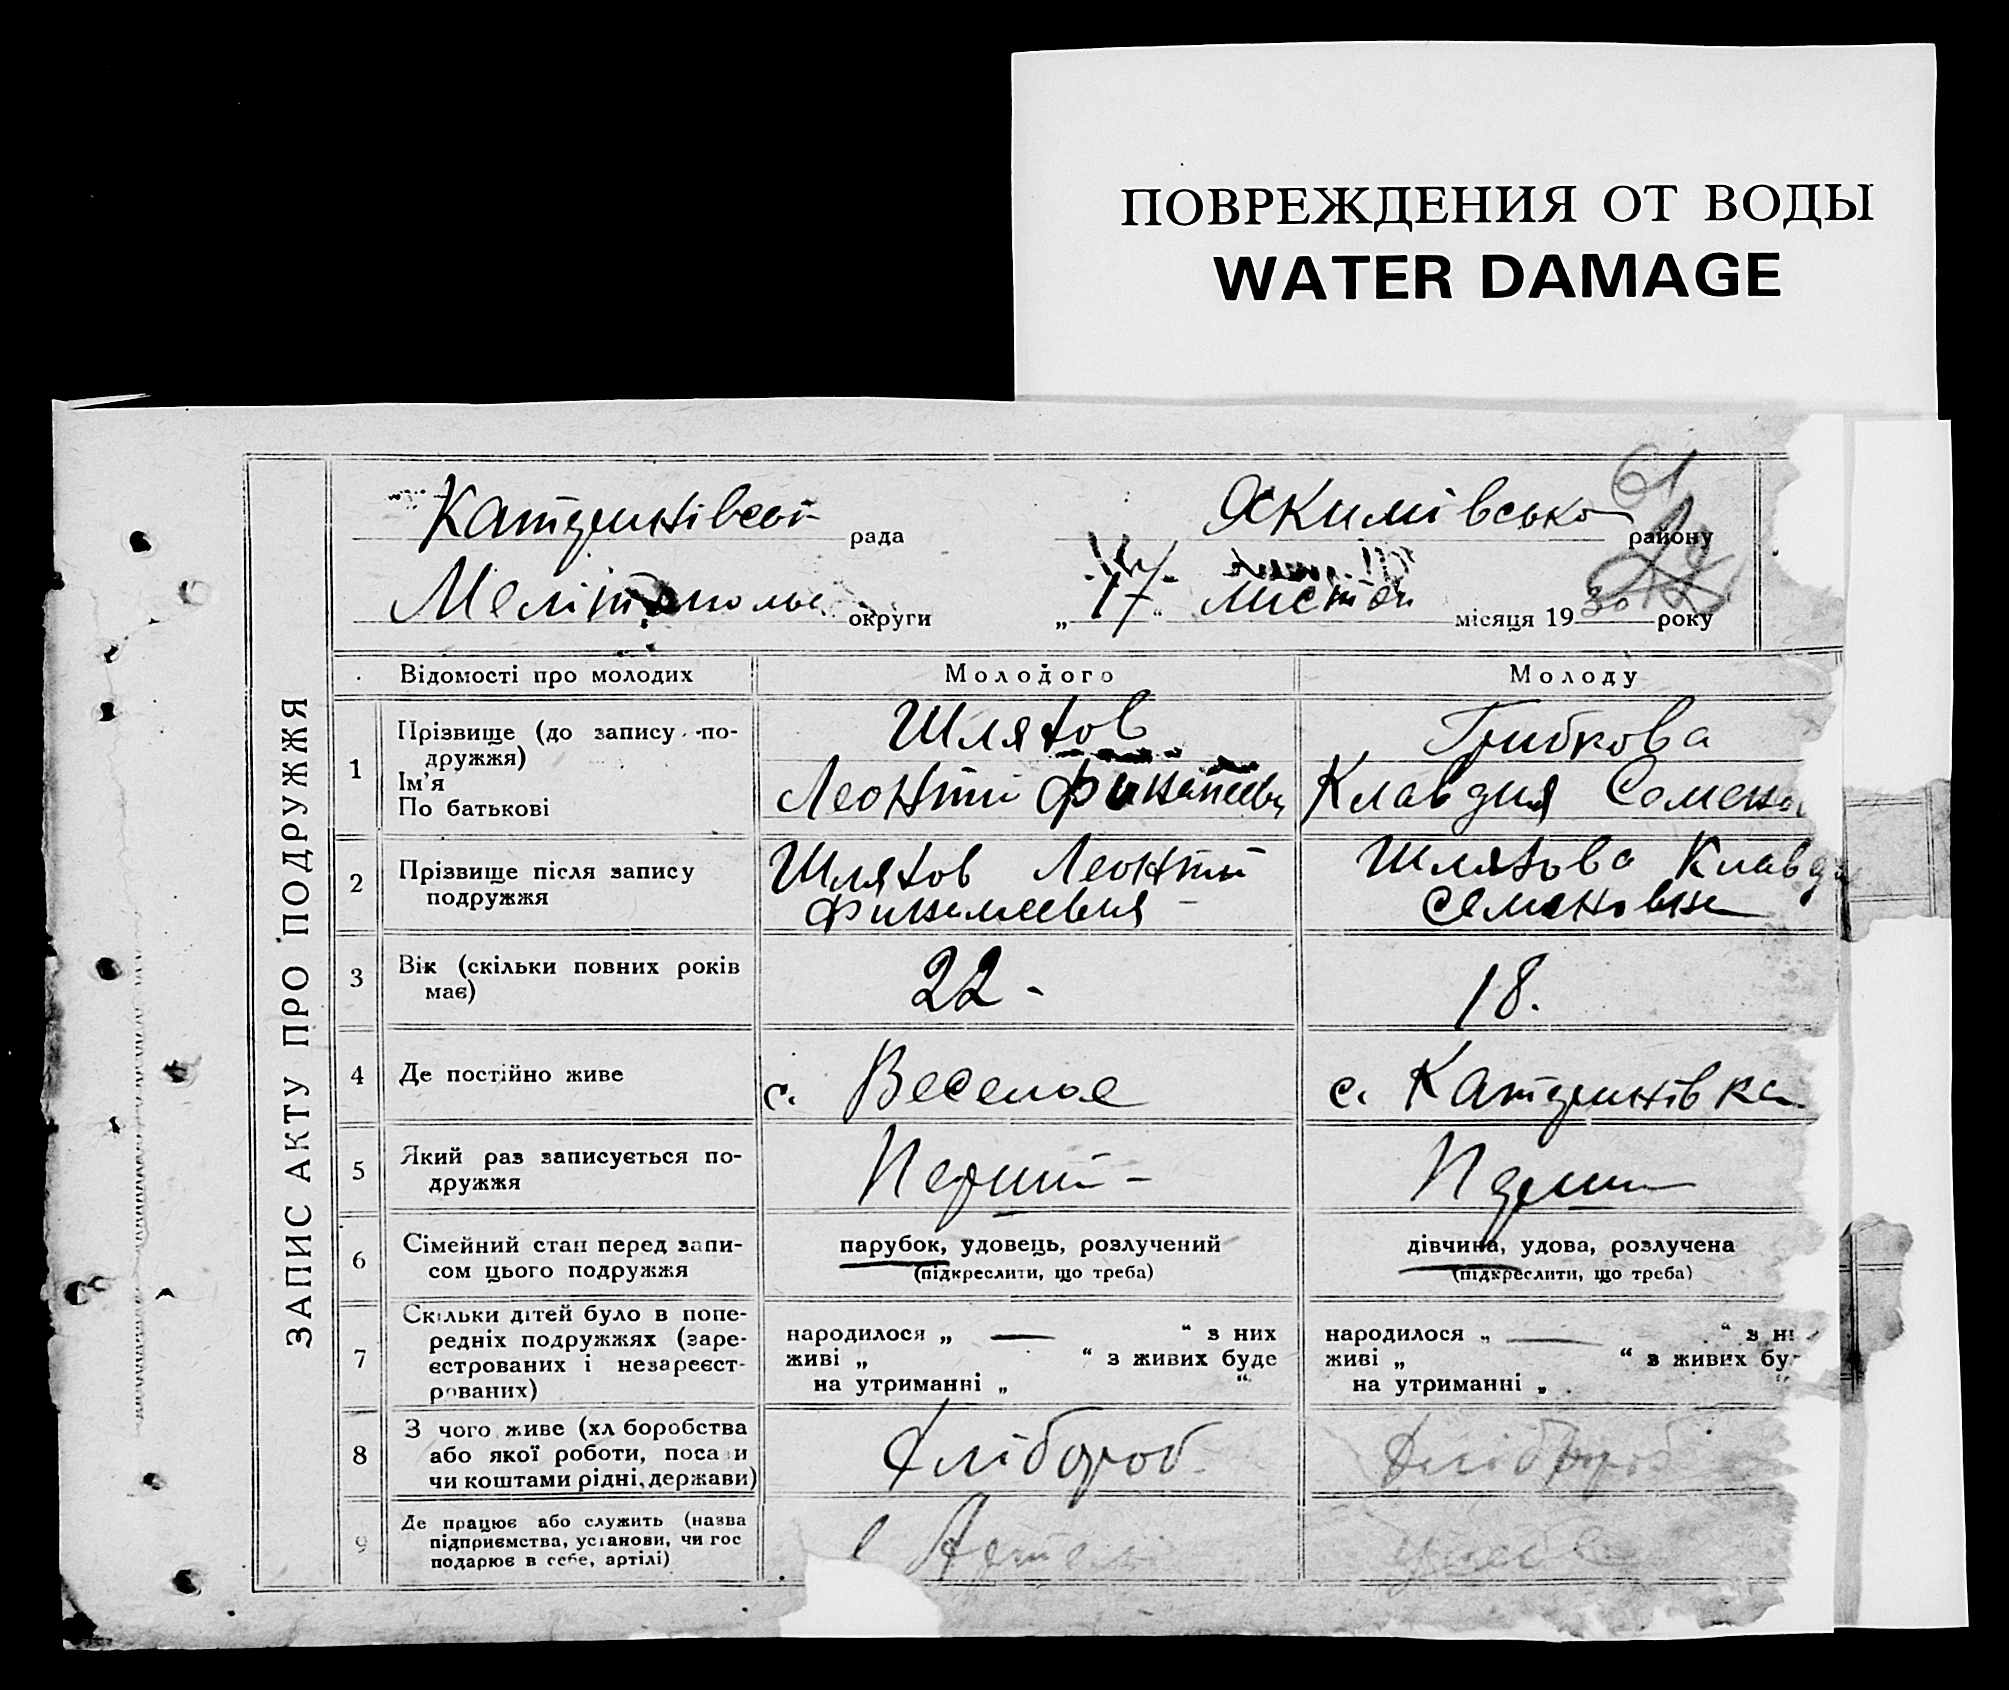 ПОВРЕЖДЕНИЯ ОТ ВОДЫ
WATER DAMAGE
61
Катеринівської рада Якимівсько району
округи „17“ листоп місяця 1930 року
ЗАПИС АКТУ ПРО ПОДРУЖЖЯ
Відомості про молодих Молодого Молоду
1 Прізвище (до запису по-
дружжя)
Ім'я
По батькові
Шляхов
Леонтий
Грибкова
Клавдия Семено
2 Прізвище після запису
подружжя
Шляхов Леонтий
Шляхова Клавди
Семеновна
3 Вік (скільки повних років
має)
22 -
18.
4 Де постійно живе с. Веселое с. Катеринівка
5 Який раз записується по-
дружжя
Перший -
Перши
6 Сімейний стан перед запи-
сом цього подружжя
парубок, удовець, розлучений
(підкреслити, що треба)
дівчина, удова, розлучена
(підкреслити, що треба)
7 Скільки дітей було в попе-
редніх подружжях (заре-
єстрованих і незареєст-
рованих)
народилося „ — “ з них
живі „ “ з живих буде
на утриманні „ “
народилося „ — “ з ни
живі „ “ з живих бу
на утриманні „ “
8 З чого живе (хл боробства
або якої роботи, поса и
чи коштами рідні, держави)
Хлібороб
Хлібороб
9 Де працює або служить (назва
підприємства, установи, чи гос
подарює в себе, артілі)
в Артели